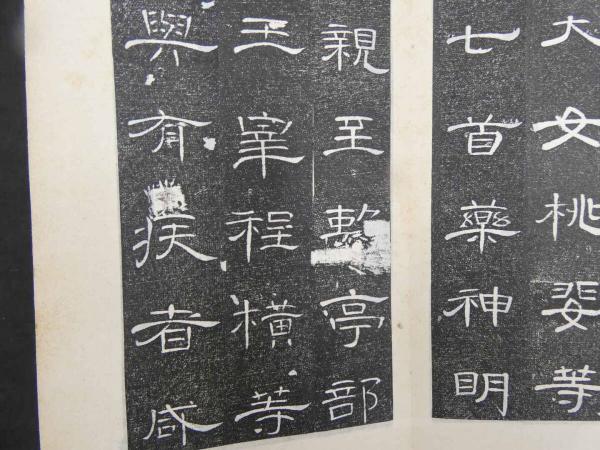 大女桃婓等
七首藥神明
親至亭部
王宰程橫等
與有疾者咸